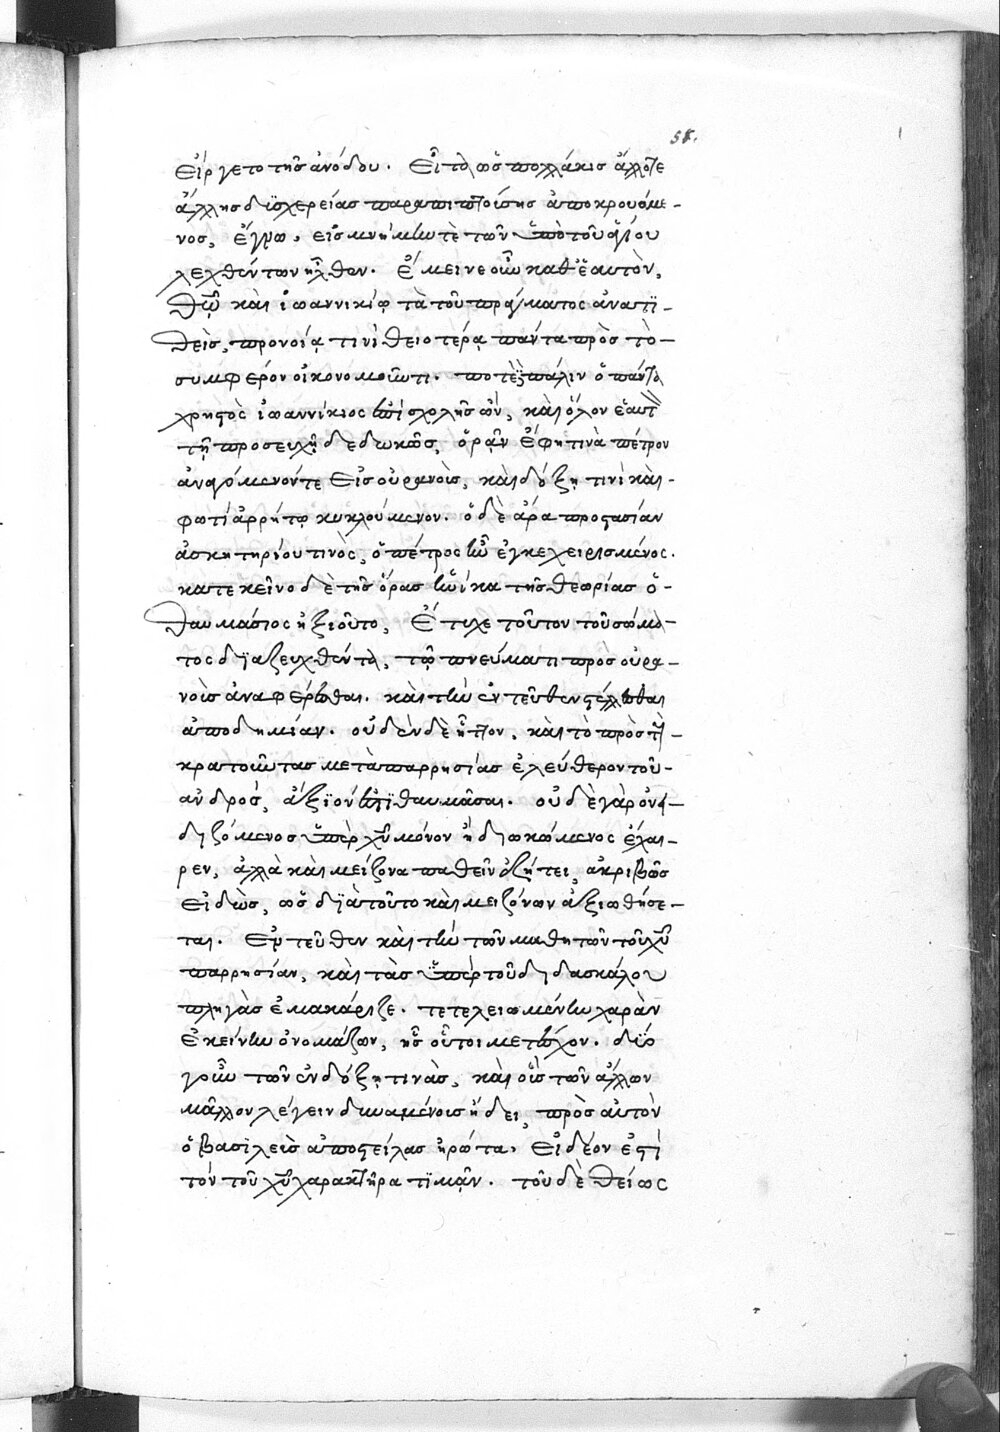 58.
εἴργετο τῆς ἀνόδου. εἶτα ὡς πολλάκις ἄλλοτε
ἄλλης δυσχερείας παραπιπτούσης ἀποκρουόμε-
νος, ἔγνω. εἰς μνήμην τὲ τῶν ὑπὸ τοῦ ἁγίου
λεχθέντων ἦλθεν. ἔμεινε οὖν καθ' ἑαυτὸν,
θῶ καὶ ἰωαννικίω τὰ τοῦ πράγματος ἀνατι-
θεὶς, προνοία τινὶ θειοτέρα πάντα πρὸς τὸ-
συμφέρον οἰκονομοῦντι. ποτὲ πάλιν ὁ πάντα
χρηστὸς ἰωαννίκιος ἐπὶ σχολῆς ὢν, καὶ ὅλον ἑαυτὸν
τῆ προσευχῆ δεδωκὼς, ὁρᾶν ἔφη τινὰ πέτρον
ἀναγόμενόν τε εἰς οὐρανοὺς, καὶ δόξη τινὶ καὶ-
φωτὶ ἀρρήτω κυκλούμενον. ὁ δὲ ἄρα προστασίαν
ἀσκητηρίου τινὸς, ὁ πέτρος ἦν ἐγκεχειρισμένος.
κατ ἐκεῖνο δὲ τῆς ὥρας ἡνίκα τῆς θεωρίας ὁ-
θαυμάσιος ἠξιοῦτο, ἔτυχε τοῦτον τοῦ σώμα-
τος διαζευχθέντα, τῶ πνεύματι πρὸς οὐρα-
νοὺς ἀναφέρεσθαι. καὶ τὴν ἐντεῦθεν στέλλεσθαι
ἀποδημίαν. οὐδὲν δὲ ἧττον, καὶ τὸ πρὸς τοὺς-
κρατοῦντας μετὰ παρρησίας ἐλεύθερον τοῦ-
ἀνδρός, ἄξιόν ἐστι θαυμᾶσαι. οὐδὲ γὰρ ὀνει-
διζόμενος ὑπὲρ χῦ μόνον ἢ διωκόμενος ἔχαι-
ρεν, ἀλλὰ καὶ μείζονα παθεῖν ἐζήτει, ἀκριβῶς
εἰδὼς, ὡς διὰ τοῦτο καὶ μειζόνων ἀξιωθήσε-
ται. ἐντεῦθεν καὶ τὴν τῶν μαθητῶν τοῦ χῦ
παρρησίαν, καὶ τὰς ὑπὲρ τοῦ διδασκάλου
πληγὰς ἐμακάριζε. τετελειωμένην χαρὰν
ἐκείνην ὀνομάζων, ἧς οὗτοι μετέσχον. διό
γοῦν τῶν ἐν δόξη τινὰς, καὶ οἷς τῶν ἄλλων
μᾶλλον λέγειν δυναμένοις ἤδει, πρὸς αὐτὸν
ὁ βασιλεὺς ἀποστείλας ἠρώτα. εἰ δέον ἐστὶ
τόν τοῦ χῦ χαρακτῆρα τιμᾶν. τοῦ δὲ θείως